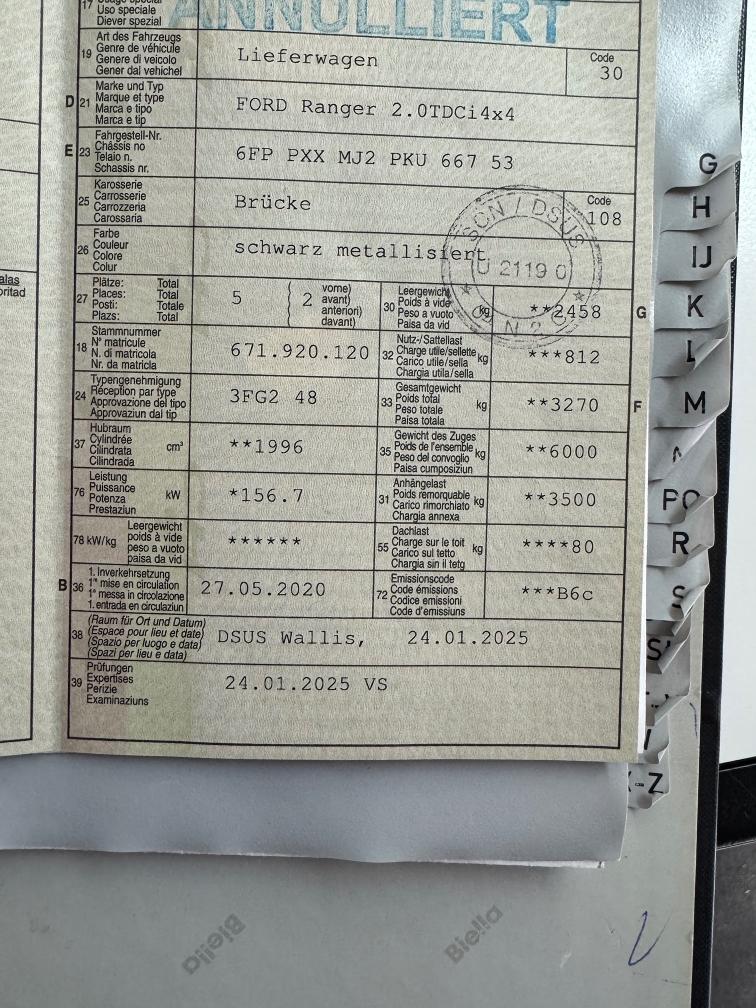 17
Uso speciale
Diever spezial
ANNULLIERT
19
Art des Fahrzeugs
Genre de véhicule
Genere di veicolo
Gener dal vehichel
Lieferwagen
Code
30
D 21
Marke und Typ
Marque et type
Marca e tipo
Marca e tip
FORD Ranger 2.0TDCi4x4
E 23
Fahrgestell-Nr.
Châssis no
Telaio n.
Schassis nr.
6FP PXX MJ2 PKU 667 53
25
Karosserie
Carrosserie
Carrozzeria
Carossaria
Brücke
Code
108
26
Farbe
Couleur
Colore
Colur
schwarz metallisiert
SCN / DSUS
U 2119 0
27
Plätze: Total
Places: Total
Posti: Totale
Plazs: Total
5
2
vorne)
avant)
anteriori)
davant)
30
Leergewicht
Poids à vide
Peso a vuoto
Paisa da vid
kg
**2458
G
18
Stammnummer
N° matricule
N. di matricola
Nr. da matricla
671.920.120
32
Nutz-/Sattellast
Charge utile/sellette
Carico utile/sella
Chargia utila/sella
kg
***812
24
Typengenehmigung
Réception par type
Approvazione del tipo
Approvaziun dal tip
3FG2 48
33
Gesamtgewicht
Poids total
Peso totale
Paisa totala
kg
**3270
F
37
Hubraum
Cylindrée
Cilindrata
Cilindrada
cm³
**1996
35
Gewicht des Zuges
Poids de l'ensemble
Peso del convoglio
Paisa cumposiziun
kg
**6000
76
Leistung
Puissance
Potenza
Prestaziun
kW
*156.7
31
Anhängelast
Poids remorquable
Carico rimorchiato
Chargia annexa
kg
**3500
78 kW/kg
Leergewicht
poids à vide
peso a vuoto
paisa da vid
******
55
Dachlast
Charge sur le toit
Carico sul tetto
Chargia sin il tetg
kg
****80
B 36
1. Inverkehrsetzung
1re mise en circulation
1a messa in circolazione
1. entrada en circulaziun
27.05.2020
72
Emissionscode
Code émissions
Codice emissioni
Code d'emissiuns
***B6c
38
(Raum für Ort und Datum)
(Espace pour lieu et date)
(Spazio per luogo e data)
(Spazi per lieu e data)
DSUS Wallis, 24.01.2025
39
Prüfungen
Expertises
Perizie
Examinaziuns
24.01.2025 VS
G
H
IJ
K
L
M
R
S
-Z
Biella
Biella